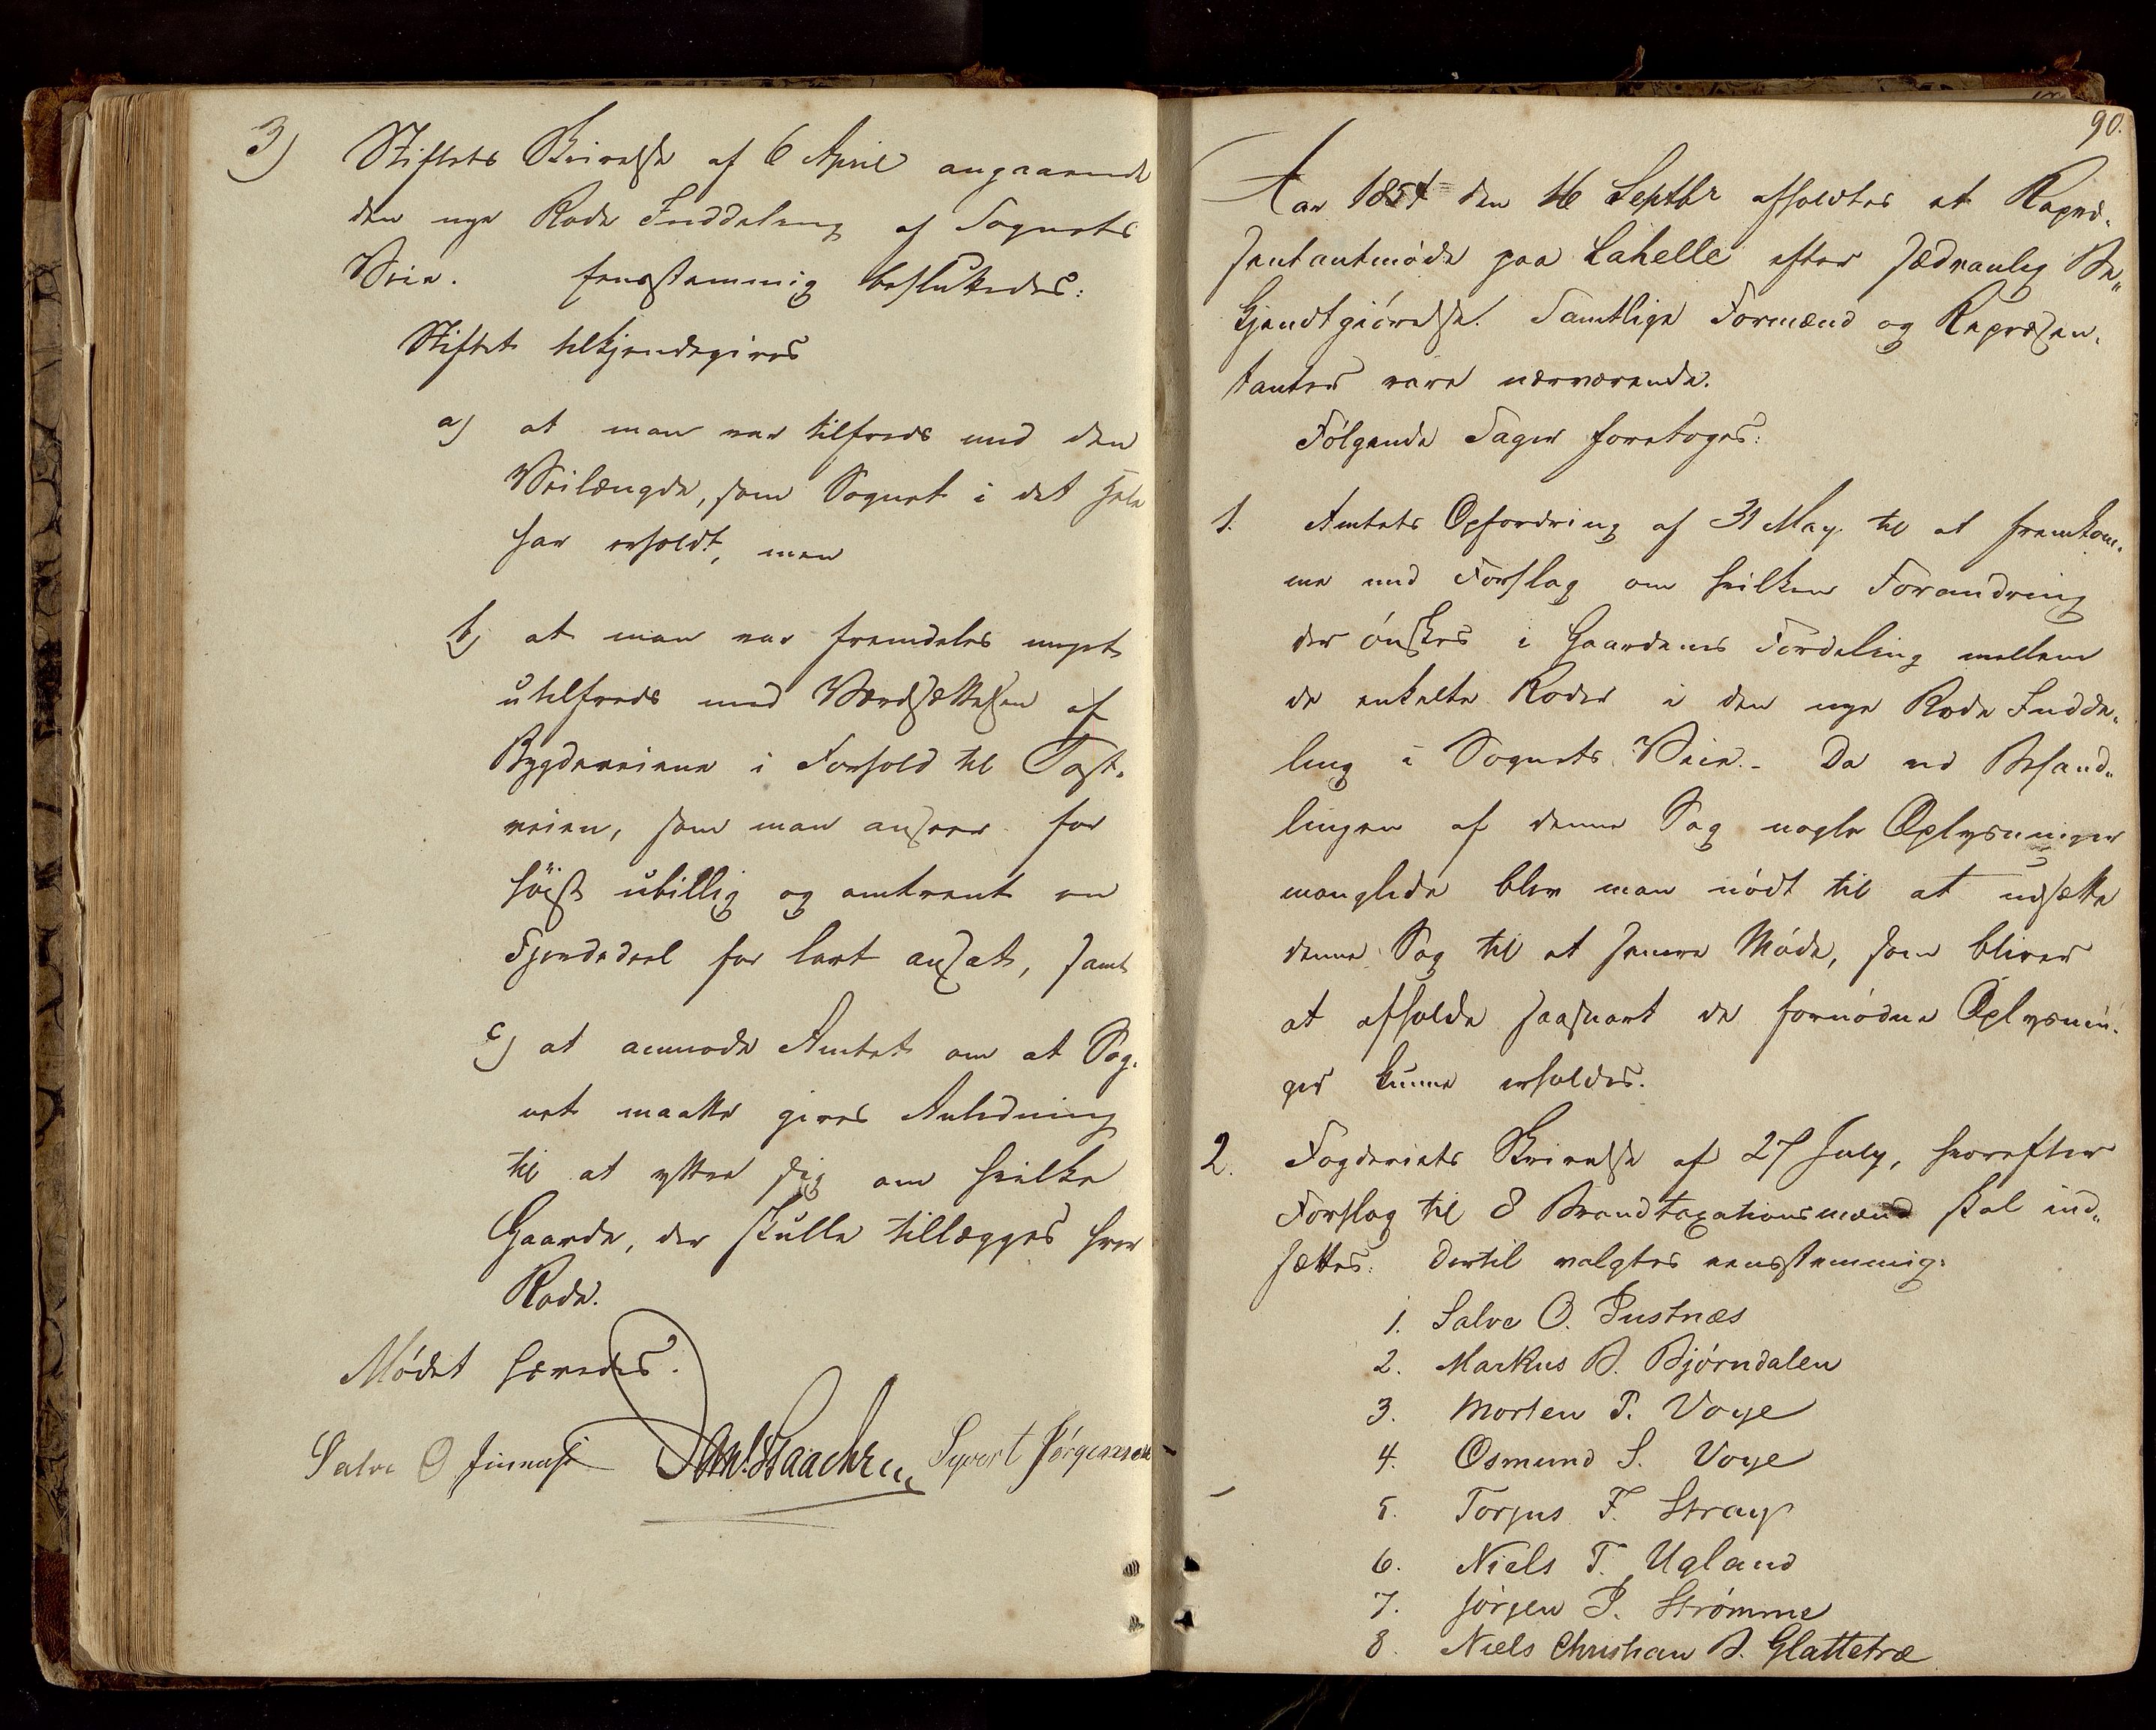 3) Stiftets Skrivelse af 6 April angaaende
den nye Rode Inddeling af Sognets
Veie. Eensstemmig besluttedes:
Stiftet tilkjendegives
a) at man var tilfreds med den
Veilængde, som Sognet i det Hele
har erholdt, men
b) at man var fremdeles meget
utilfreds med Værdsættelsen af
Bygdeveiene i Forhold til Post-
veien, som man anseer for
höist ubillig og omtrent en
Fjerdedeel for lavt ansat, samt
c) at anmode Amtet om at Sog-
net maatte gives Anledning
til at yttre sig om hvilke
Gaarde, der skulle tillægges hver
Rode.
Mødet hævedes.
Salve O Syvert Jörgensen
90.
Aar 1854 den 16 Septbr afholdtes et Repræ-
sentantmöde paa Lahelle efter sædvanlig Be-
kjendtgiörelse. Samtlige Formænd og Repræsen-
tanter vare nærværende.
Fölgende Sager foretoges:
1. Amtets Opfordring af 31 May til at fremkom-
me med Forslag om hvilken Forandring
der önskes i Gaardenes Fordeling mellem
de enkelte Roder i den nye Rode Indde-
ling i Sognets Veie. - Da ved Behand-
lingen af denne Sag nogle Oplysninger
manglede blev man nödt til at udsætte
denne Sag til et senere Möde, som bliver
at afholde saasnart de fornödne Oplysnin-
ger kunne erholdes.
2. Fogderiets Skrivelse af 27 July, hvorefter
Forslag til 8 Brandtaxationsmænd skal ind-
sættes. Dertil valgtes eensstemmig:
1. Salve O. Justnæs
2. Markus B. Bjørndalen
3. Morten T. Voye
4. Osmund S. Voye
5. Torjus F. Stray
6. Niels T. Ugland
7. Jörgen P. Strømme
8. Niels Christian B. Glattetræ